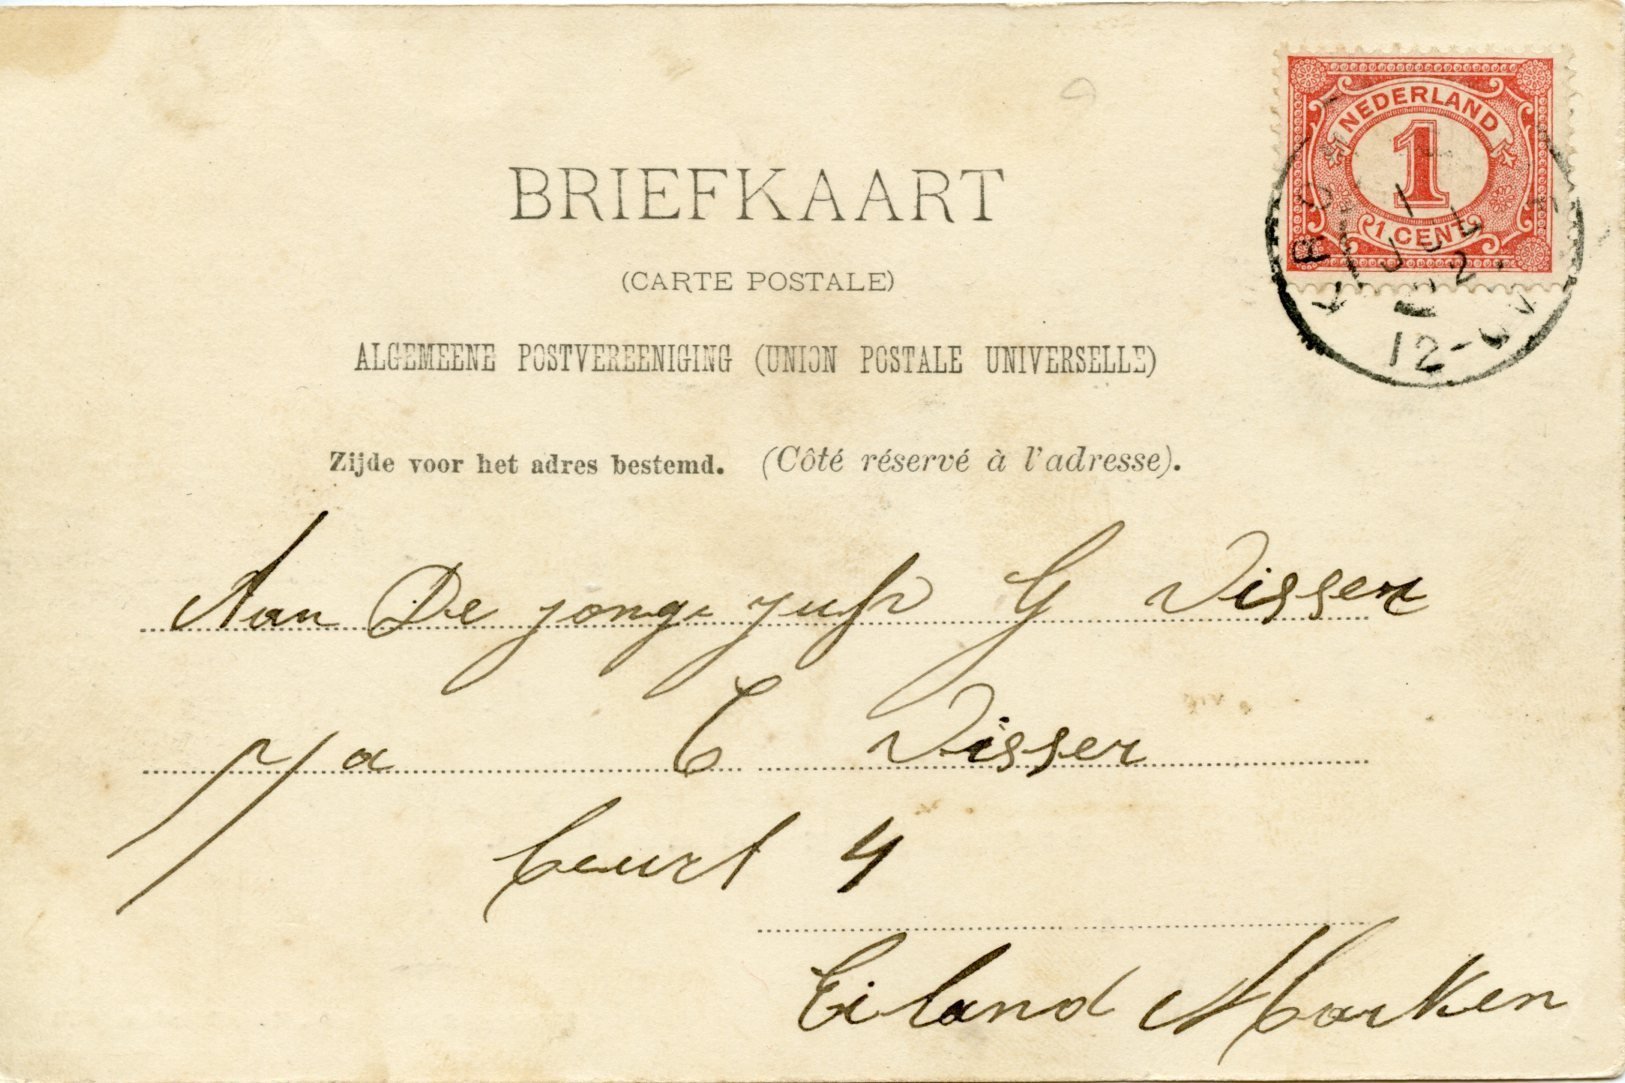 BRIEFKAART
(CARTE POSTALE)
ALGEMEENE POSTVEREENIGING (UNION POSTALE UNIVERSELLE)
Zijde voor het adres bestemd. (Côté réservé à l'adresse).
NEDERLAND
1
1 CENT
JUL
12-
Aan De jonge jufr G Visser
p/a C Visser
buurt 4
Eiland Marken